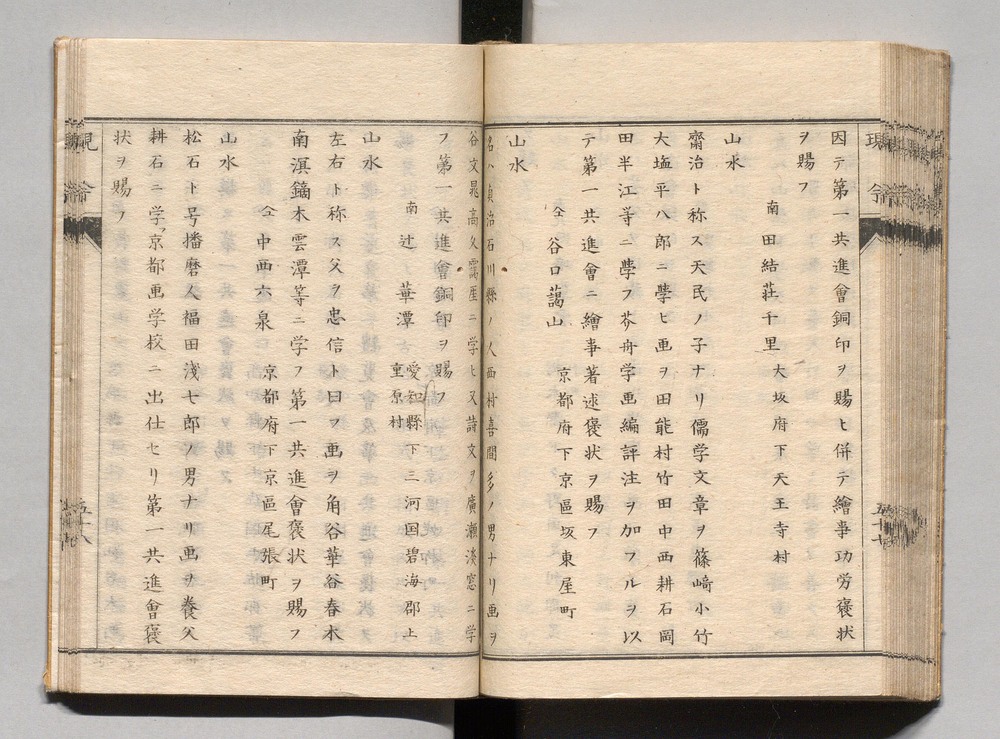 因テ第一共進會銅印ヲ賜ヒ併テ繪事功労褒状
ヲ賜フ
南 田結荘千里 大坂府下天王寺村
山水
齋治ト称ス天民ノ子ナリ儒学文章ヲ篠﨑小竹
大塩平八郎ニ學ヒ画ヲ田能村竹田中西耕石岡
田半江等ニ學フ芥舟学画編評注ヲ加フルヲ以
テ第一共進會ニ繪事著述褒状ヲ賜フ
仝 谷口藹山 京都府下京區坂東屋町
山水
名ハ貞治石川縣ノ人西村喜間多ノ男ナリ画ヲ
谷文晁高久靄厓ニ学ヒ又詩文ヲ廣瀬淡窓ニ学
フ第一共進會銅印ヲ賜フ
南 辻華潭 愛知縣下三河国碧海郡上
重原村
山水
左右ト称ス父ヲ忠信ト曰フ画ヲ角谷華谷春木
南溟鏑木雲潭等ニ学フ第一共進會褒状ヲ賜フ
仝 中西六泉 京都府下京區尾張町
山水
松石ト号播磨人福田淺七郎ノ男ナリ画ヲ養父
耕石ニ学ヒ京都画学校ニ出仕セリ第一共進會褒
状ヲ賜フ
現今
五十七
現今
五十八